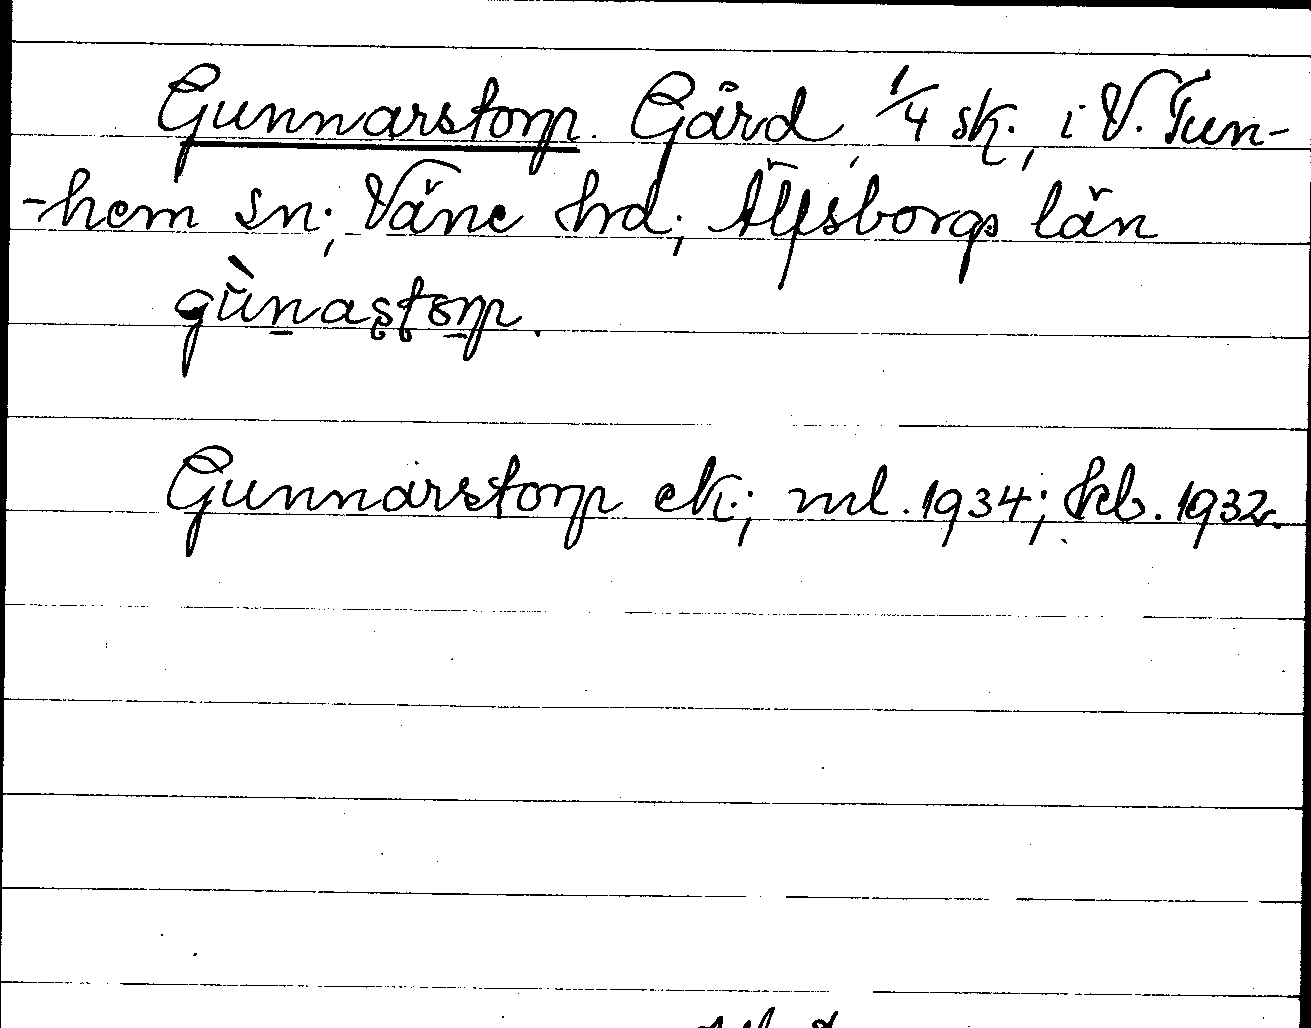 Gunnarstorp. Gård, 1/4 sk., i V. Tun-
-hem sn; Väne hd; Älfsborgs län
gùnaştorp.
Gunnarstorp ek.; ml. 1934; kb. 1932.